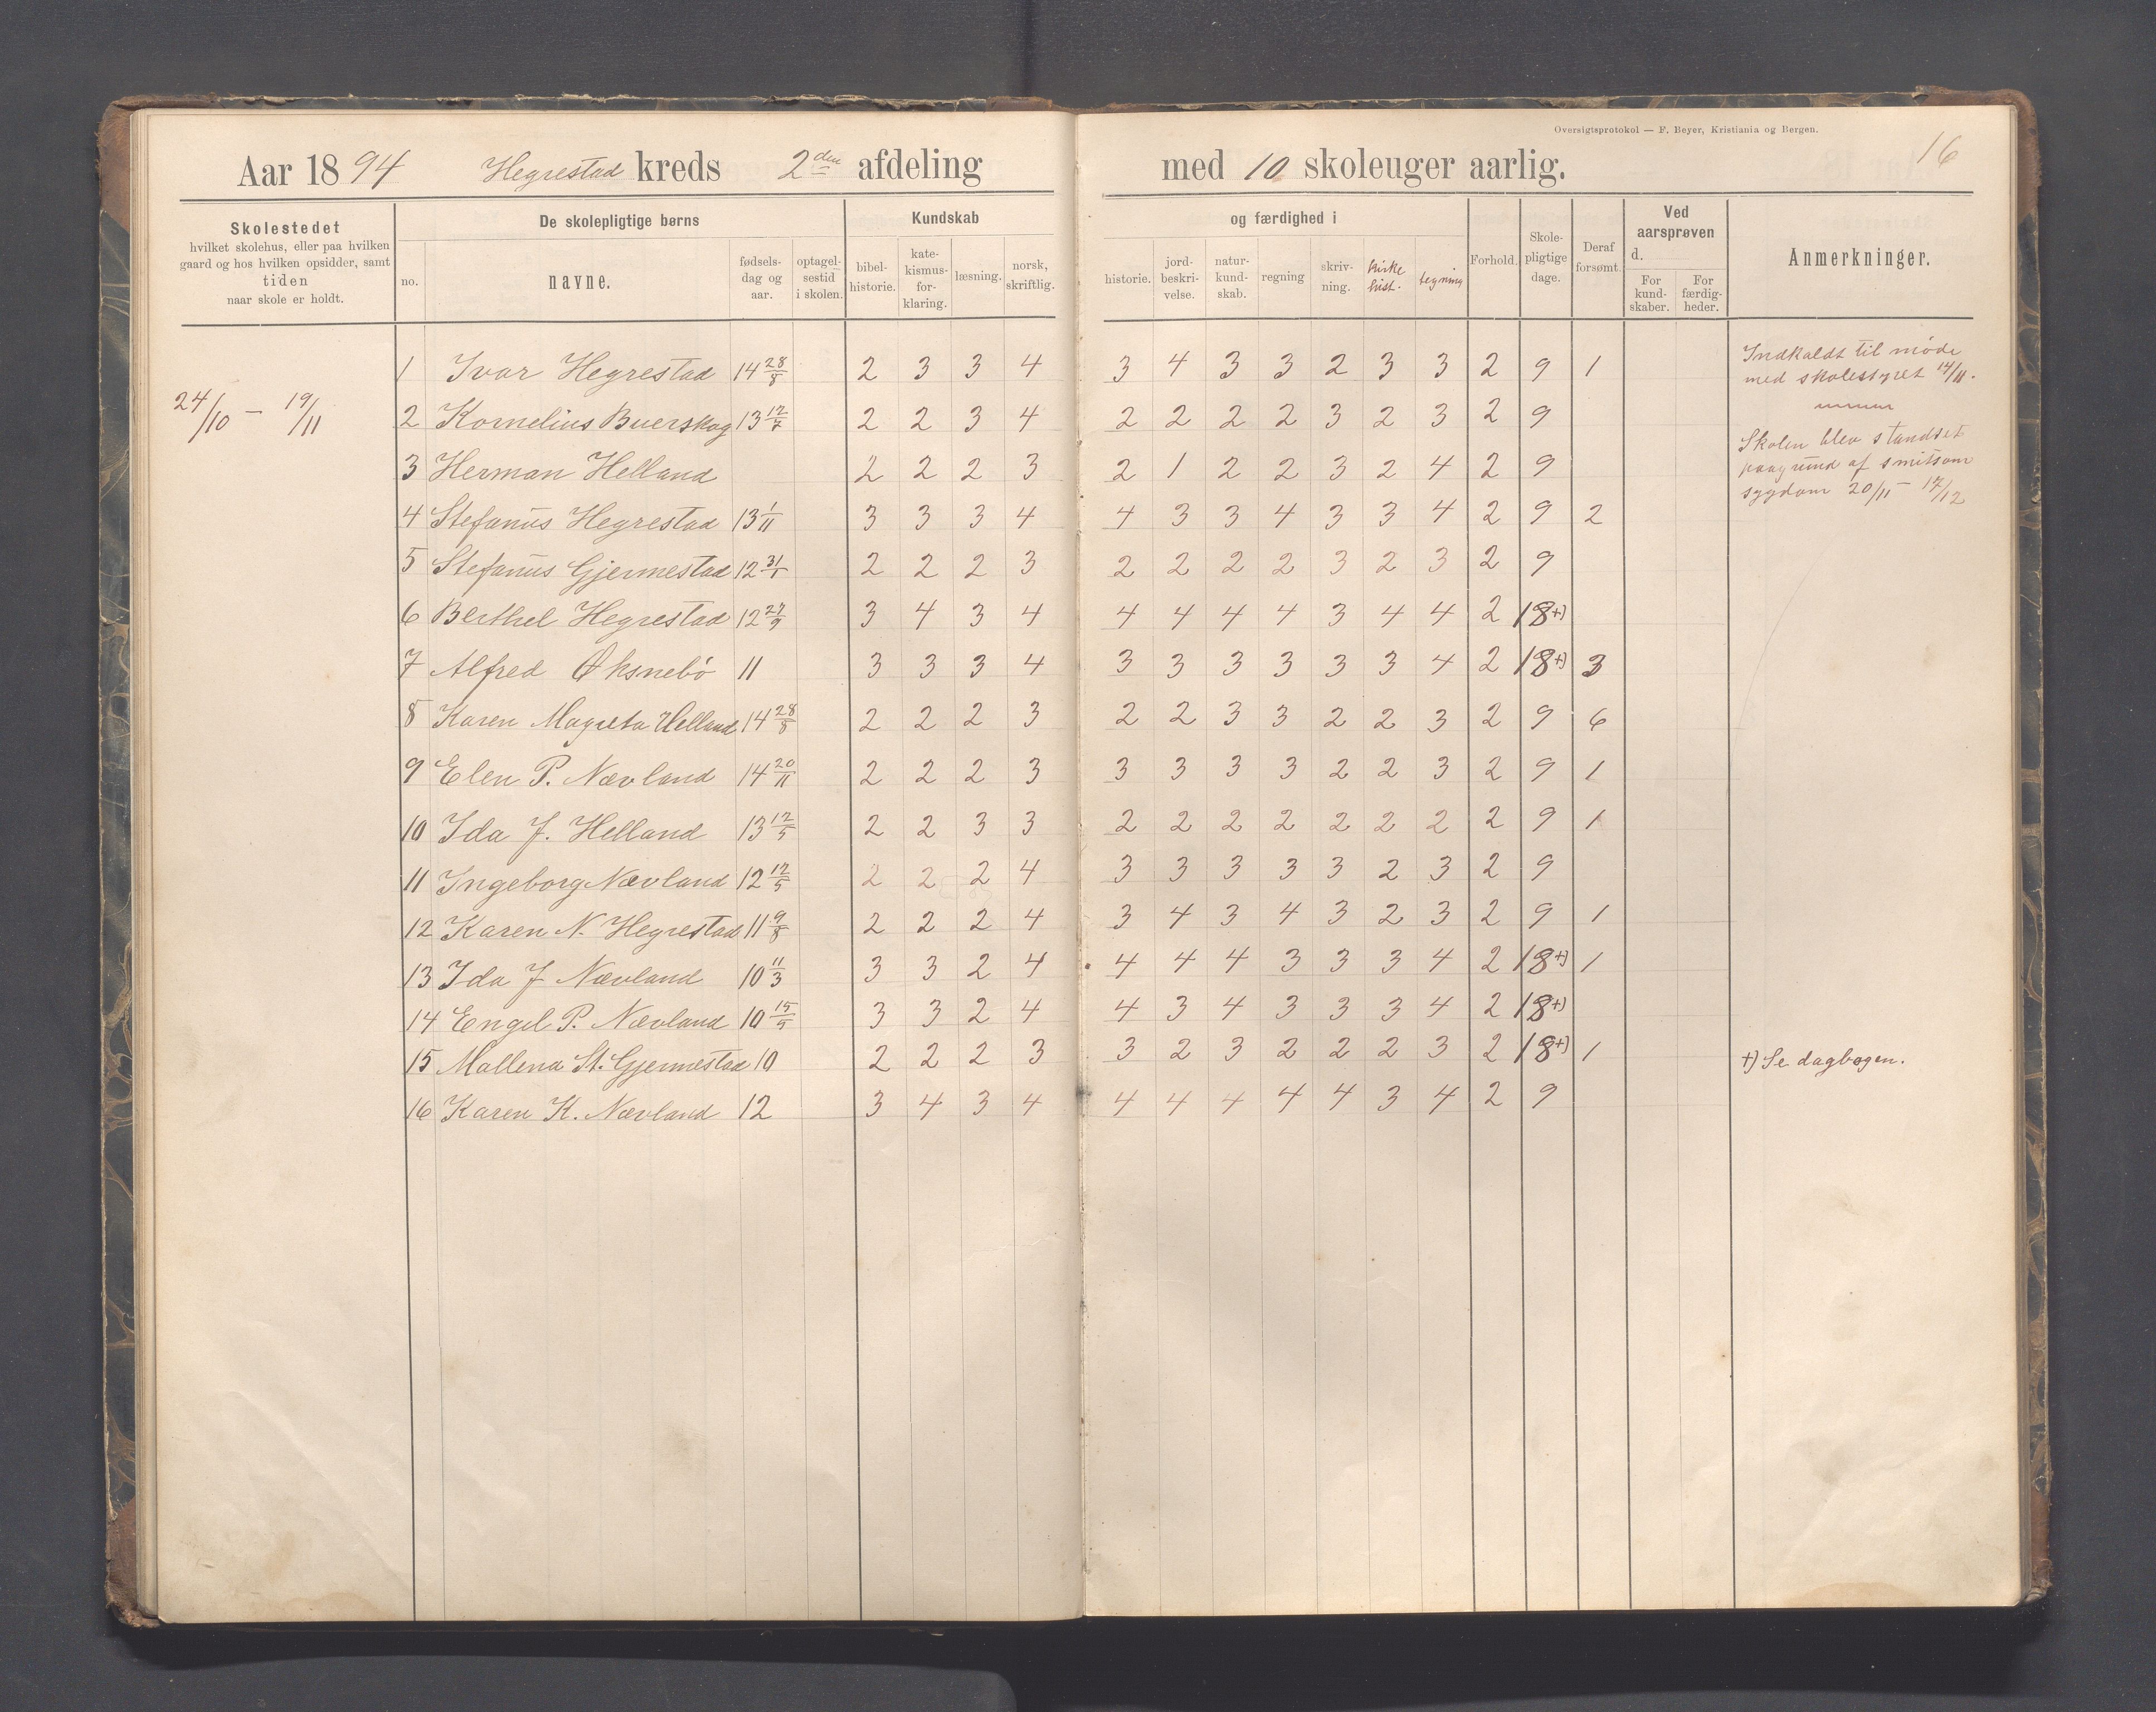 Oversigtsprotokol — F. Beyer, Kristiania og Bergen.
16
Aar 1894 Hegrestad kreds 2den afdeling med 10 skoleuger aarlig.
Skolestedet
hvilket skolehus, eller paa hvilken
gaard og hos hvilken opsidder, samt
tiden
naar skole er holdt.
De skolepligtige børns
no.
navne.
fødsels-
dag og
aar.
optagel-
sestid
i skolen.
Kundskab og færdighed i
bibel-
historie.
kate-
kismus-
for-
klaring.
læsning.
norsk,
skriftlig.
historie.
jord-
beskri-
velse.
natur-
kund-
skab.
regning
skriv-
ning.
kirke
hist.
tegning
Forhold.
Skole-
pligtige
dage.
Deraf
forsømt.
Ved
aarsprøven
d.
For
kund-
skaber.
For
færdig-
heder.
Anmerkninger.
24/10 – 19/11
1 Ivar Hegrestad 14 28/8 2 3 3 4 3 4 3 3 2 3 3 2 9 1
2 Kornelius Buerskog 13 17/7 2 2 3 4 2 2 2 2 3 2 3 2 9
3 Herman Helland 2 2 2 3 2 1 2 2 3 2 4 2 9
4 Stefanus Hegrestad 13 1/11 3 3 3 4 4 3 3 4 3 3 4 2 9 2
5 Stefanus Gjermestad 12 31/1 2 2 2 3 2 2 2 2 3 2 3 2 9
6 Berthel Hegrestad 12 27/9 3 4 3 4 4 4 4 4 3 4 4 2 18+)
7 Alfred Øksnebö 11 3 3 3 4 3 3 3 3 3 3 4 2 18+) 3
8 Karen Magreta Helland 14 28/8 2 2 2 3 2 2 3 3 2 2 3 2 9 6
9 Elen P. Nævland 14 20/11 2 2 2 3 3 3 3 3 2 2 3 2 9 1
10 Ida J. Helland 13 12/5 2 2 3 3 2 2 2 2 2 2 2 2 9 1
11 Ingeborg Nævland 12 12/5 2 2 2 4 3 3 3 3 3 2 3 2 9
12 Karen N. Hegrestad 11 9/8 2 2 2 4 3 4 3 4 3 2 3 2 9 1
13 Ida J Nævland 10 11/3 3 3 2 4 4 4 4 3 3 3 4 2 18+) 1
14 Engel P. Nævland 10 15/9 3 3 2 4 4 3 4 3 3 3 4 2 18+)
15 Mallena St. Gjermestad 10 2 2 2 3 3 2 3 2 2 2 3 2 18+) 1
16 Karen K. Nævland 12 3 4 3 4 4 4 4 4 4 3 4 2 9
Indkaldt til møde
med skolestyret 14/11.
Skolen blev standset
paagrund af smitsom
sygdom 20/11 – 17/12
+) Se dagbogen.